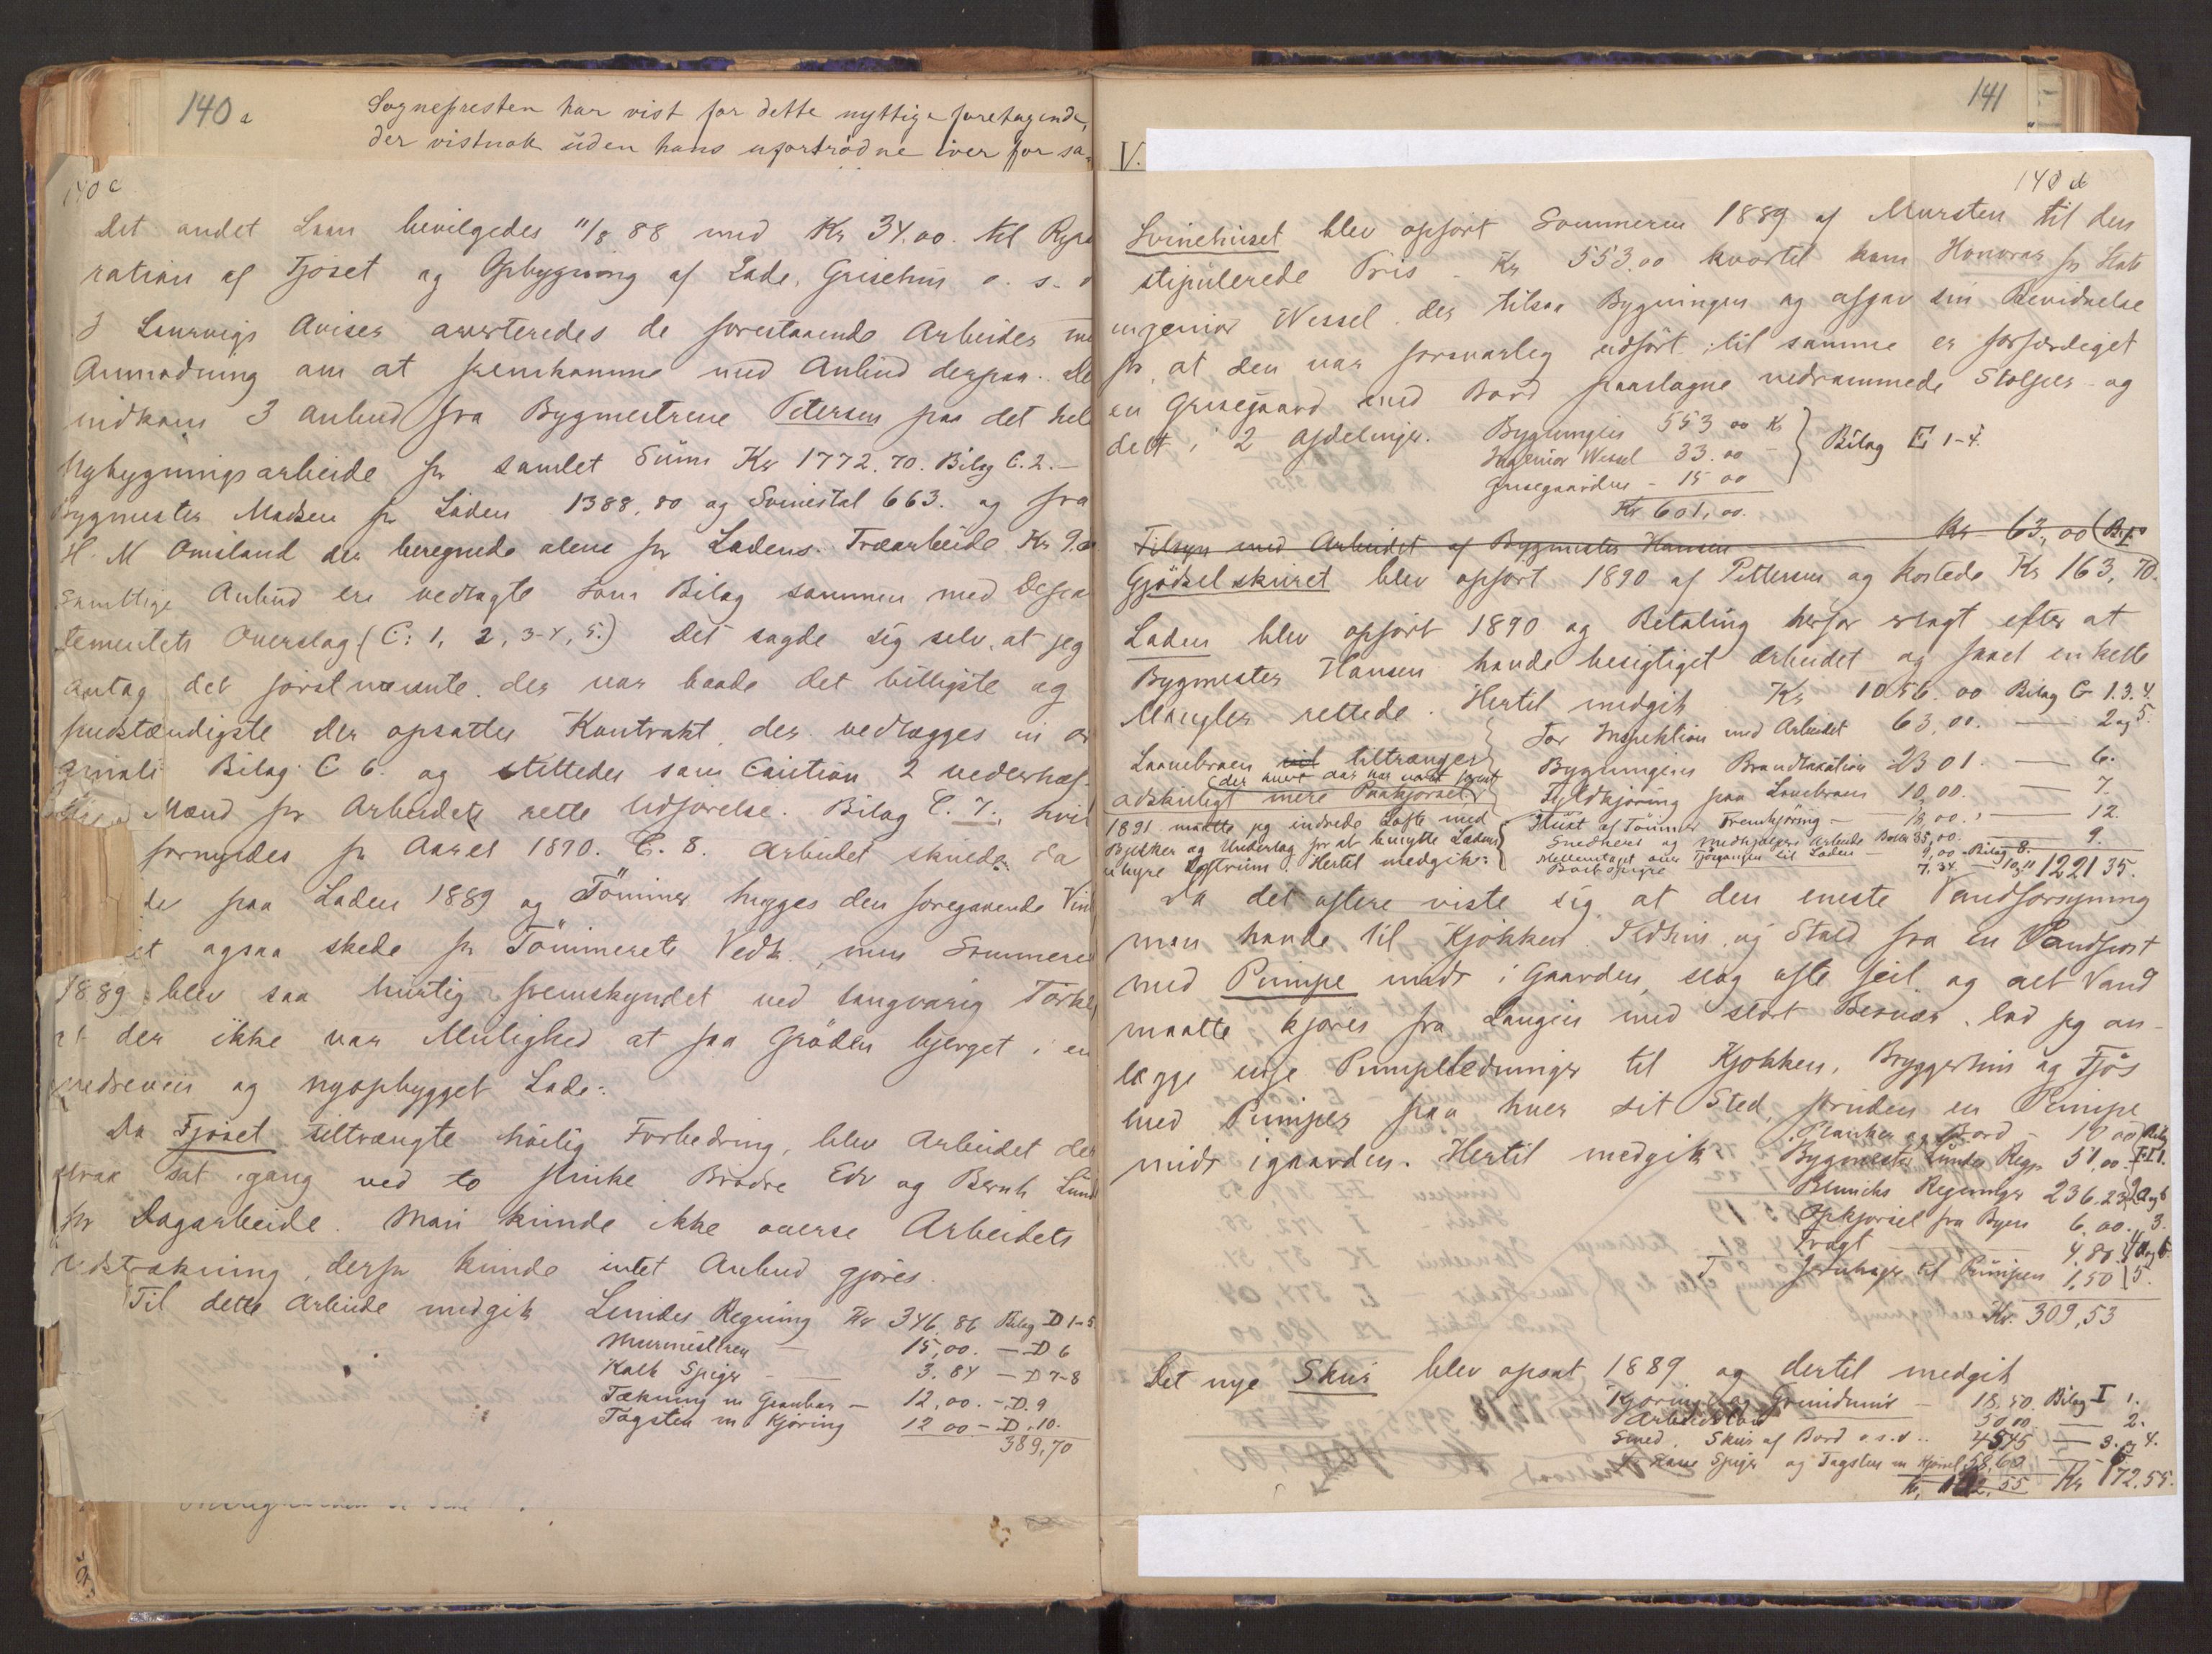 140a
Sognepresten har vist for dette nyttige foretagende,
der vistnok uden hans ufortrødne iver for sa-
140c
Det andet Laan bevilgedes 11/8 88 med Kr 34.00. til Repa
ration af Fjøset og Opbygning af Lade, Grisehus o. s.
I Laurvigs Aviser averteredes de forestaaende Arbeider me
Anmodning om at fremkomme med Anbud derpaa. De
indkom 3 anbud fra Bygmestrene Petersen paa det hele
Nybygningsarbeide for samlet Sum Kr 1772.70. Bilag C.2.-
Bygmester Madsen for Laden 1388,80 og Svinestal 663. og fra
H. M Omsland der beregnede alene for Ladens Træarbeide Kr
Samtlige Anbud ere vedlagte som Bilag sammen med Depar
tementets Overslag (C: 1, 2, 3-4, 5.) Det sagde sig selv, at jeg
antog det førstnævnte, der var baade det billigste og
fuldstændigste Der opsattes Kontrakt, der vedlægges in ori
ginali Bilag C 6. og stilledes som Caution 2 vederhæf-
Mænd for Arbeidets rette Udførelse. Bilag C. 7., hvil
fornyedes for Aaret 1890. C. 8. Arbeidet skulde da
de paa Laden 1889 og Tömmer hugges den foregaaende Vin
et ogsaa skede for Tömmerets Vedk., men Sommeren
1889 blev saa hurtig fremskyndet ved langvarig Tørke,
at der ikke var Mulighed at faa Gröden bjerget i en
nedreven og nyopbygget Lade.
Da Fjøset tiltrængte høilig Forbedring, blev Arbeidet der
strax sat igang ved to flinke Brødre Edv og Bernh Lund
for Dagarbeide. Man kunde ikke overse Arbeidets
Udstrækning, derfor kunde intet Anbud gjøres.
Til dette Arbeide medgik Lundes Regning Kr 346.86 Bilag D 1-5
Murmesteren — 15,00. — D 6
Kalk Spiger — 3.84 — D 7-8
Tækning m Granbar — 12,00. — D. 9
Tagsten m Kjøring 12 00 — D. 10.
389,70
141
V.
140 d
Svinehuset blev opført Sommeren 1889 af Mursten til den
stipulerede Pris - Kr 553.00 hvortil kom Honorar for Stats
ingeniør Wessel der tilsaa Bygningen og afgav sin Bevidnelse
for at den var forsvarlig udført, til samme er forfærdiget
en Grisegaard med Bord paaslagne nedrammede Stolper og
delt i 2 Afdelinger. Bygningen 553 00 Kr
Ingeniør Wessel 33.00 — Bilag E 1-4.
Grisegaarden - 15 00
Kr 601,00.
Tilsyn med Arbeidet af Bygmester Hansen Kr 63,00
Gjødselskuret blev opført 1890 af Pettersen og kostede Kr 163, 70.
Laden blev opført 1890 og Betaling herfor erlagt efter at
Bygmester Hansen havde besigtiget Arbeidet og faaet enkelte
Mangler rettede. Hertil medgik Kr 1056.00 Bilag G 1.3.4.
For Inspektion med Arbeidet 63,00. — 2 og 5.
Laavebroen tiltrænger Bygningens Brandtaxation 23 01. — 6.
adskilligt mere Paakjørsel Fyldkjøring paa Lavebroen 10,00. — 7.
1891 maatte jeg indrede Lofte med Hugst af Tömmer Fremkjøring — 18,00. — 12.
Bjelker og Underlag for at benytte Ladens Snedkers og Medhjælpers Arbeide 35,00. — 9.
uhyre Hertil medgik: Mellemlaget over Fjøsgangen til Laden — 9,00 — Bilag 8.
7.34 — 10, 11 1221 35.
Da det oftere viste sig, at den eneste Vandforsyning
man havde til Kjøkken, Ildhus og Stald fra en Vandpost
med Pumpe midt i Gaarden, slog ofte feil og alt Vand
maatte kjøres fra Laugen med stort Besvær, lod jeg an-
lægge nye Pumpeledninger til Kjøkken, Bryggerhus og Fjøs
med Pumper paa hver sit Sted, foruden en Pumpe
midt i gaarden. Hertil medgik Planker og Bord — 10 00
Bygmester Lundes Regn 51,00.
Regninger 236.23
Opkjørsel fra Byen 6.00. 3.
Fragt — 4,80.
til Pumpen 1,50 5.
Kr. 309,53
Det nye Skur blev opsat 1889 og dertil medgik
Kjøring og Grundmur — 18,50. Bilag I 1.
Arbeidsløn 50.00 — 2.
Smed, Skur af Bord o.s.v. 45,45 — 3. og 4.
Spiger og Tagsten m Kjørsel 58,60
Kr 172,55.